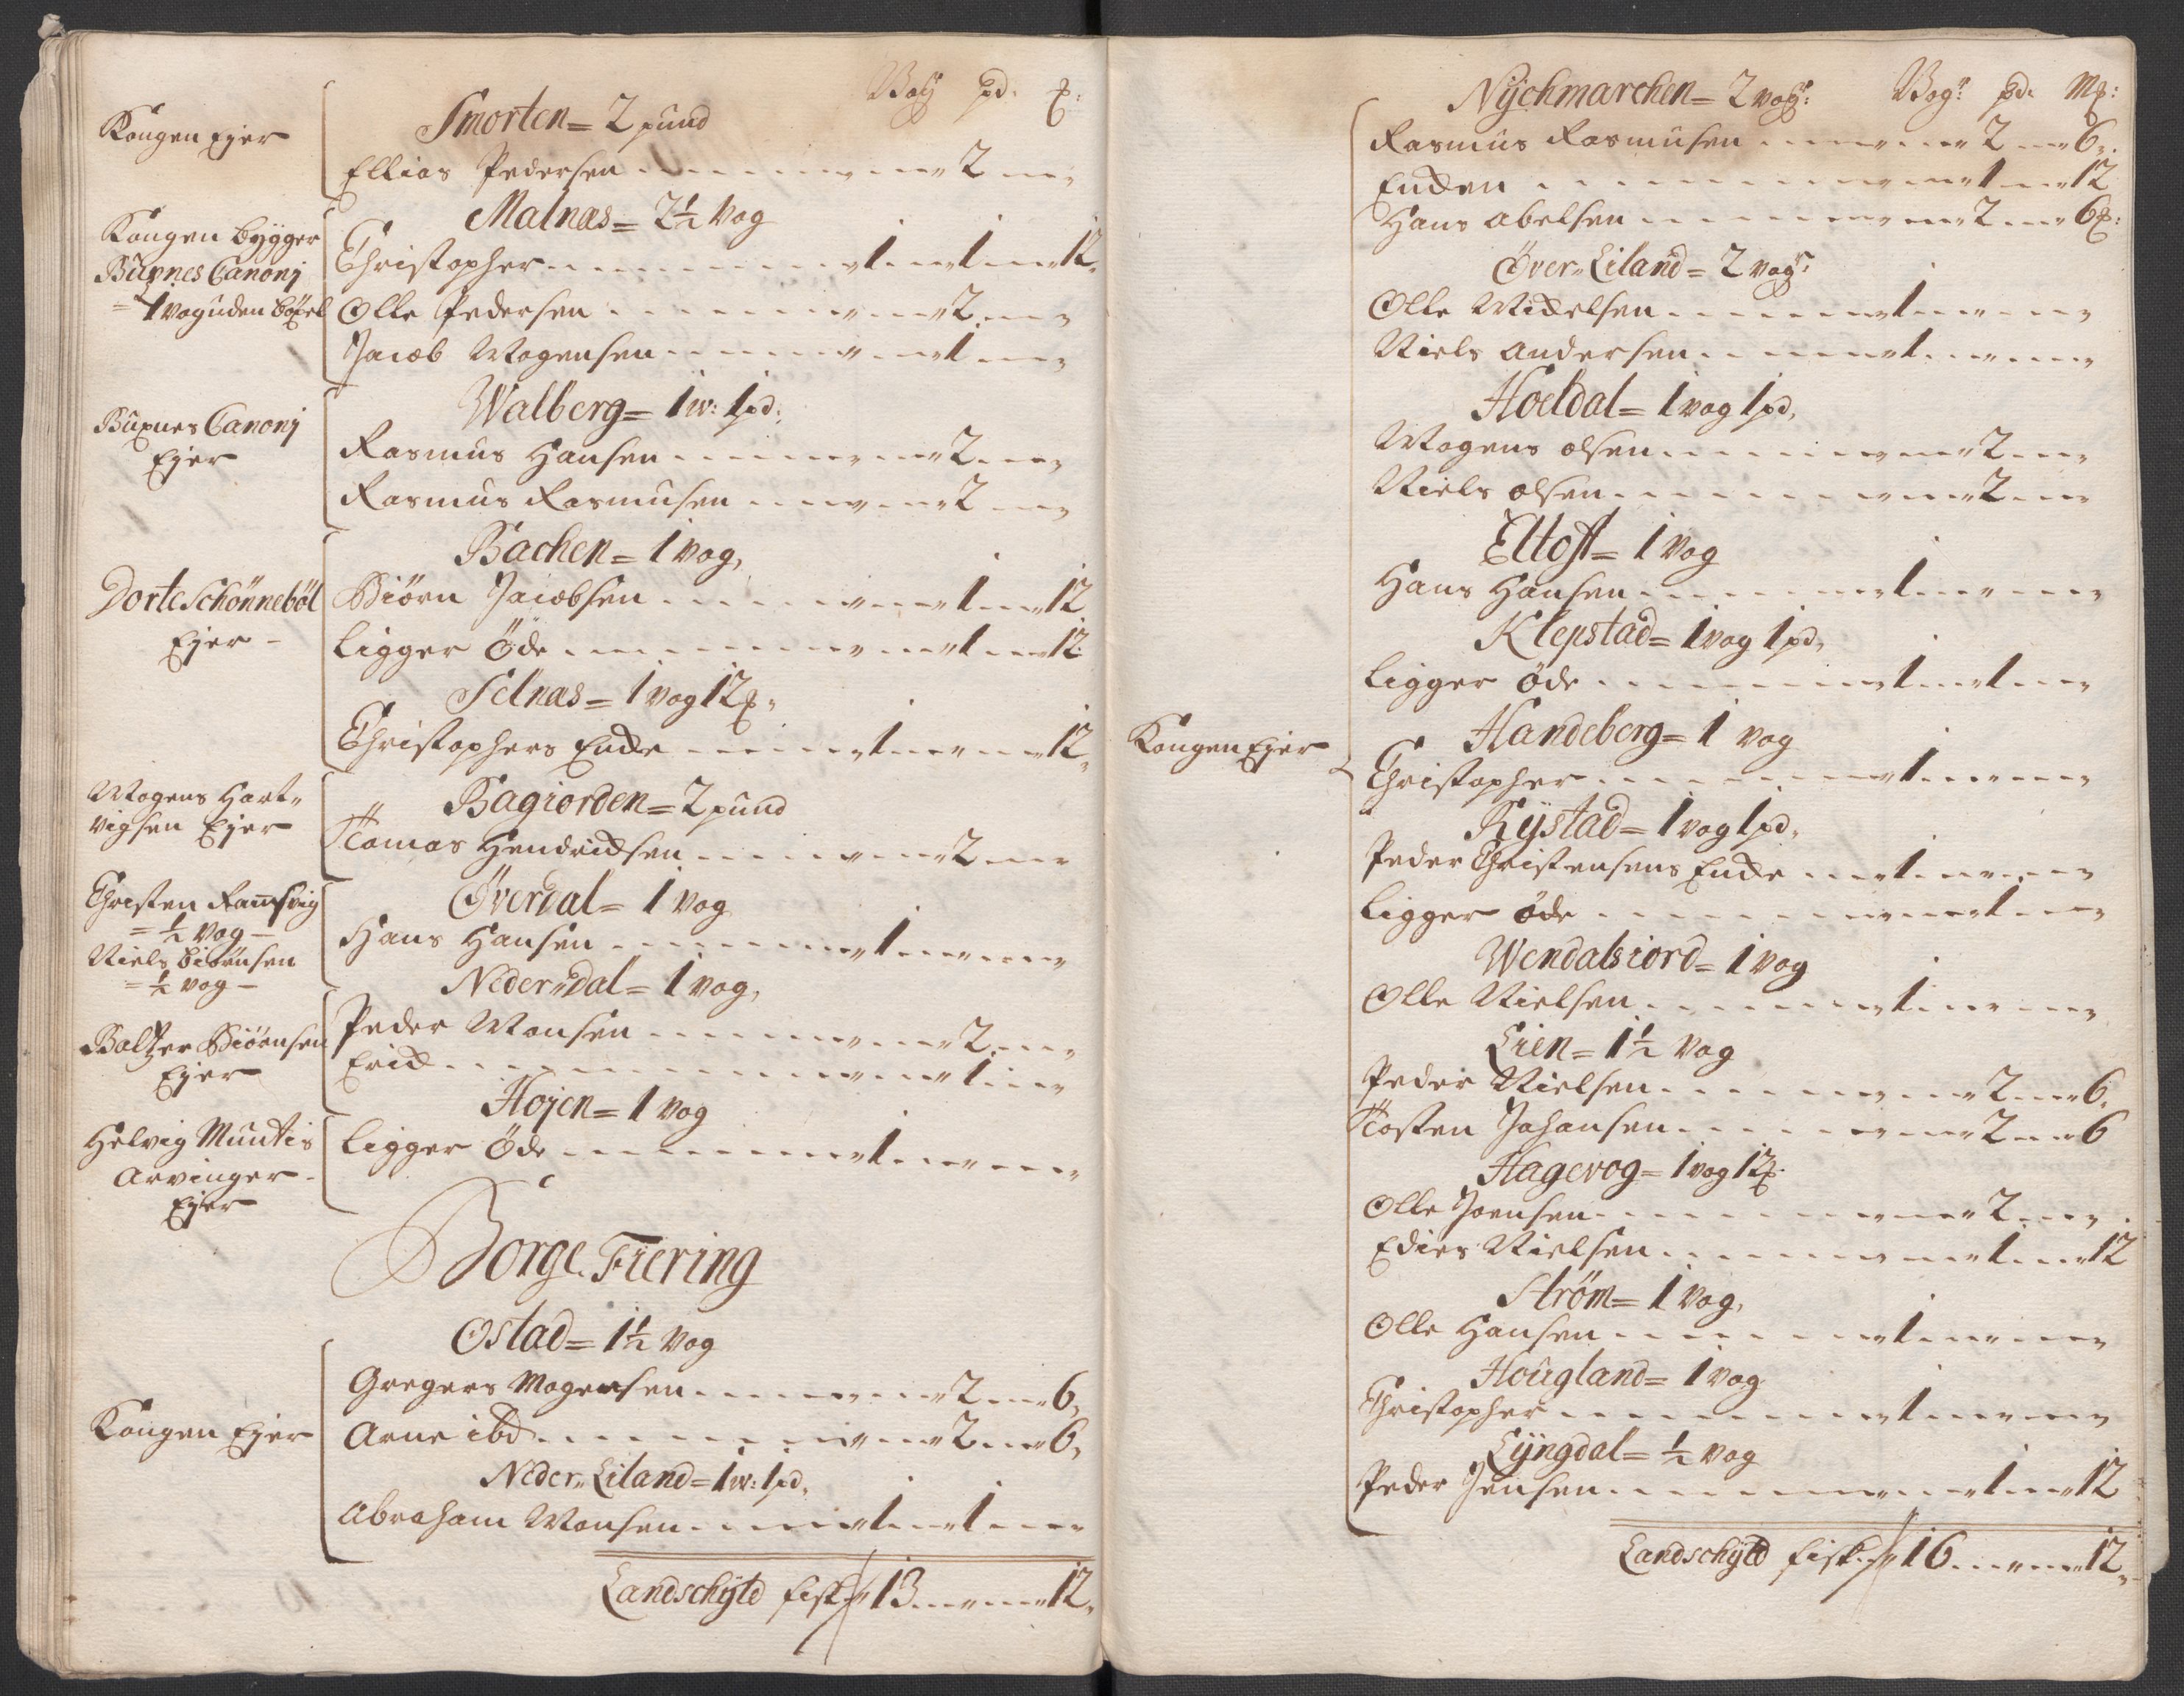 Vog pd. ℔:
Kongen Ejer
Smorten = 2 pund
Ellias Pedersen - - - " - - " 2 - - "
Malnæs = 2½ Vog
Kongen bøyger
Buxnes Canonj
= 1 vog uden bøxel
Christopher - - - 1 - - 1 - - 12.
Olle Pedersen - - - " - - " 2 - - "
Jacob Mogensen - - - " - - 1 - - "
Walberg = 1 w: 1 pd:
Buxnes Canonj
Ejer
Rasmus Hansen - - - " - - " 2 - - "
Rasmus Rasmusen - - - " - - " 2 - - "
Bachen = 1 vog,
Dorte Schönnebøl
Ejer -
Biörn Jacobsen - - - " - - 1 - - 12
Ligger Öde - - - " - - 1 - - 12
Selnæs = 1 vog 12 ℔,
Christophers Encke - - - 1 - - " - - 12,
Mogens Hart-
vigsen Ejer
Bagiorden = 2 pund
Tomas Hendricksen - - - " - - " 2 - - "
Christen Ramsvig
= ½ Vog -
Niels Biörnsen
= ½ vog -
Överdal = 1 Vog
Hans Hansen - - - 1 - - " - - "
Neder Dal = 1 vog,
Baltzer Biörnsen
Ejer
Peder Monsen - - - " - - " 2 - - "
Erick - - - " - - " 1 - - "
Hojen = 1 vog
Helvig Muntis
Arvinger -
Ejer
Ligger Öde - - - 1 - - " - - "
Borge Fiering
Ostad = 1½ Vog
Kongen Ejer
Gregers Mogensen - - - " - - " 2 - - " 6,
Arne ibd - - - " - - " 2 - - " 6,
Neder Eiland = 1 w: 1 pd,
Abraham Monsen - - - 1 - - 1 - - "
Landschyld fisk " 13 - - " - - " 12,
Nychmarchen = 2 vog: Vog: pd. M℔:
Rasmus Rasmusen - - - " - - " 2 - - " 6,
Encken - - - " - - " 1 - - " 12
Hans Abelsen - - - " - - " 2 - - " 6 ℔:
Över Eiland = 2 vog:
Olle Mickelsen - - - 1 - - " - - "
Niels Andersen - - - 1 - - " - - "
Hoeldal = 1 vog 1 pd,
Mogens Olsen - - - " - - " 2 - - "
Niels Olsen - - - " - - " 2 - - "
Eltoft = 1 Vog
Hans Hansen - - - 1 - - " - - "
Klepstad = 1 vog 1 pd,
Ligger Öde - - - 1 - - 1 - - "
Kongen Ejer
Handeberg = 1 vog
Christopher - - - 1 - - " - - "
Rystad = 1 vog 1 pd,
Peder Christensens Encke - - - 1 - - " - - "
Ligger Öde - - - " - - 1 - - "
Wendalsiord = 1 Vog
Olle Nielsen - - - 1 - - " - - "
Lien = 1½ Vog
Peder Nielsen - - - " - - " 2 - - " 6,
Tosten Johansen - - - " - - " 2 - - " 6
Hagevog = 1 vog 12 ℔.
Olle Joensen - - - " - - " 2 - - "
Edies Nielsen - - - " - - " 1 - - " 12
Ström = 1 Vog,
Olle Hansen - - - 1 - - " - - "
Hougland = 1 vog
Christopher - - - 1 - - " - - "
Lyngdal = ½ vog
Peder Jensen - - - " - - 1 - - " 12
Landschyld fisk " 16 - - " - - " 12,